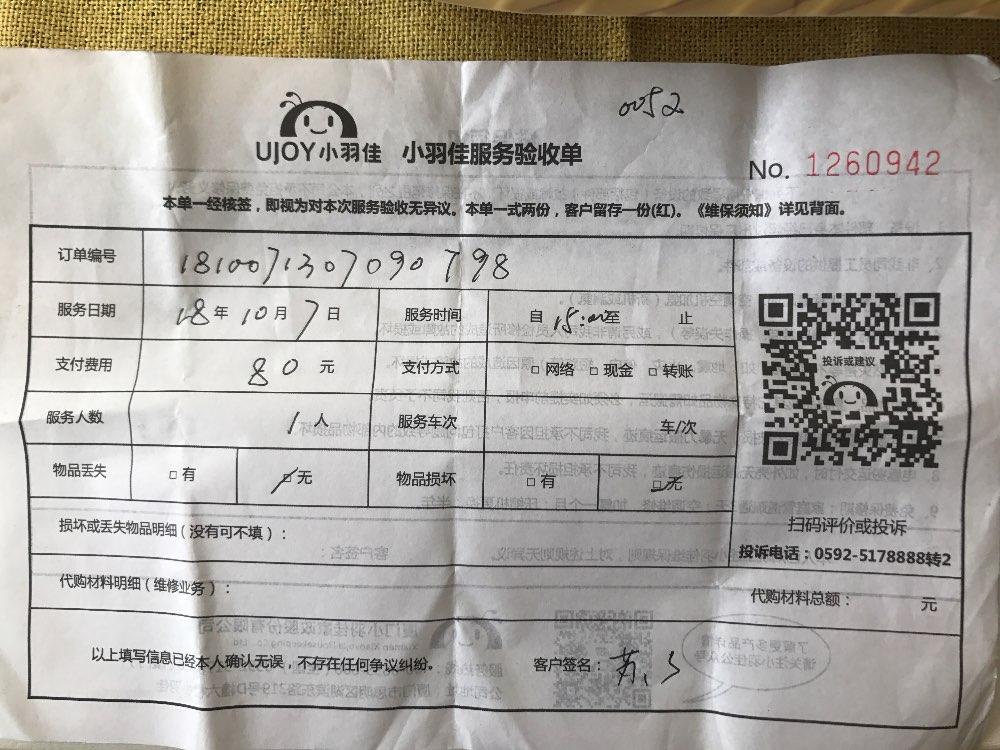 0052
UJOY小羽佳 小羽佳服务验收单
No. 1260942
本单一经核签，即视为对本次服务验收无异议。本单一式两份，客户留存一份(红)。《维保须知》详见背面。
订单编号 1810071307090798
服务日期 18年10月7日 服务时间 自15:00至 止
支付费用 80元 支付方式 □网络 □现金 □转账
投诉或建议
服务人数 1人 服务车次 车/次
物品丢失 □有 □无 物品损坏 □有 □无
扫码评价或投诉
投诉电话：0592-5178888转2
损坏或丢失物品明细（没有可不填）：
代购材料明细（维修业务）： 代购材料总额： 元
以上填写信息已经本人确认无误，不存在任何争议纠纷。 客户签名：